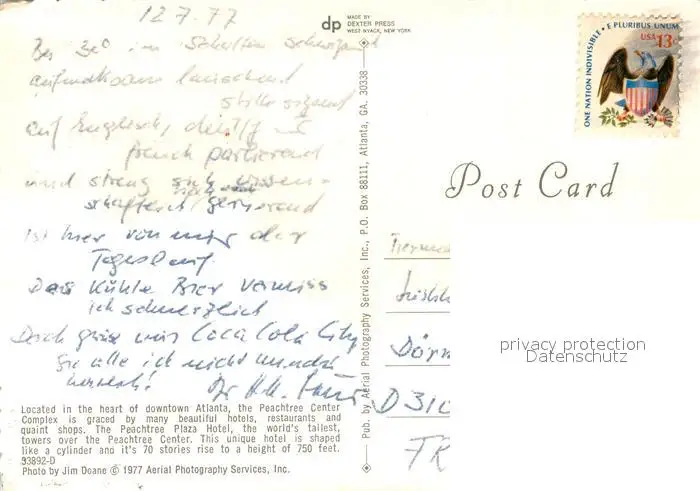 12.7.77
Bei 30° im Schatten schwitzend
aufmerksam lauschend
stille sigend
auf Englisch, deutsch
french parlierend
und streng wissen-
schaftlich gerierend
Ist hier von mir der
Tageslauf.
Das kühle Bier vermiss
ich schmerzlich
Doch grüss mir Coca Cola City
Sie alle ich nicht minder
herzlich!
Dr H.H.
dp MADE BY
DEXTER PRESS
WEST NYACK, NEW YORK
Pub. by Aerial Photography Services, Inc., P.O. Box 88111, Atlanta, GA. 30338
ONE NATION INDIVISIBLE • E PLURIBUS UNUM
USA 13c
Post Card
Dörn
D 310
FR
privacy protection
Datenschutz
Located in the heart of downtown Atlanta, the Peachtree Center
Complex is graced by many beautiful hotels, restaurants and
quaint shops. The Peachtree Plaza Hotel, the world's tallest,
towers over the Peachtree Center. This unique hotel is shaped
like a cylinder and it's 70 stories rise to a height of 750 feet.
33892-D
Photo by Jim Doane © 1977 Aerial Photography Services, Inc.